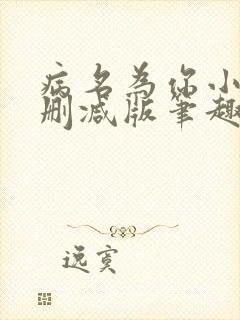 病名为你小
删减版笔趣
逸寞